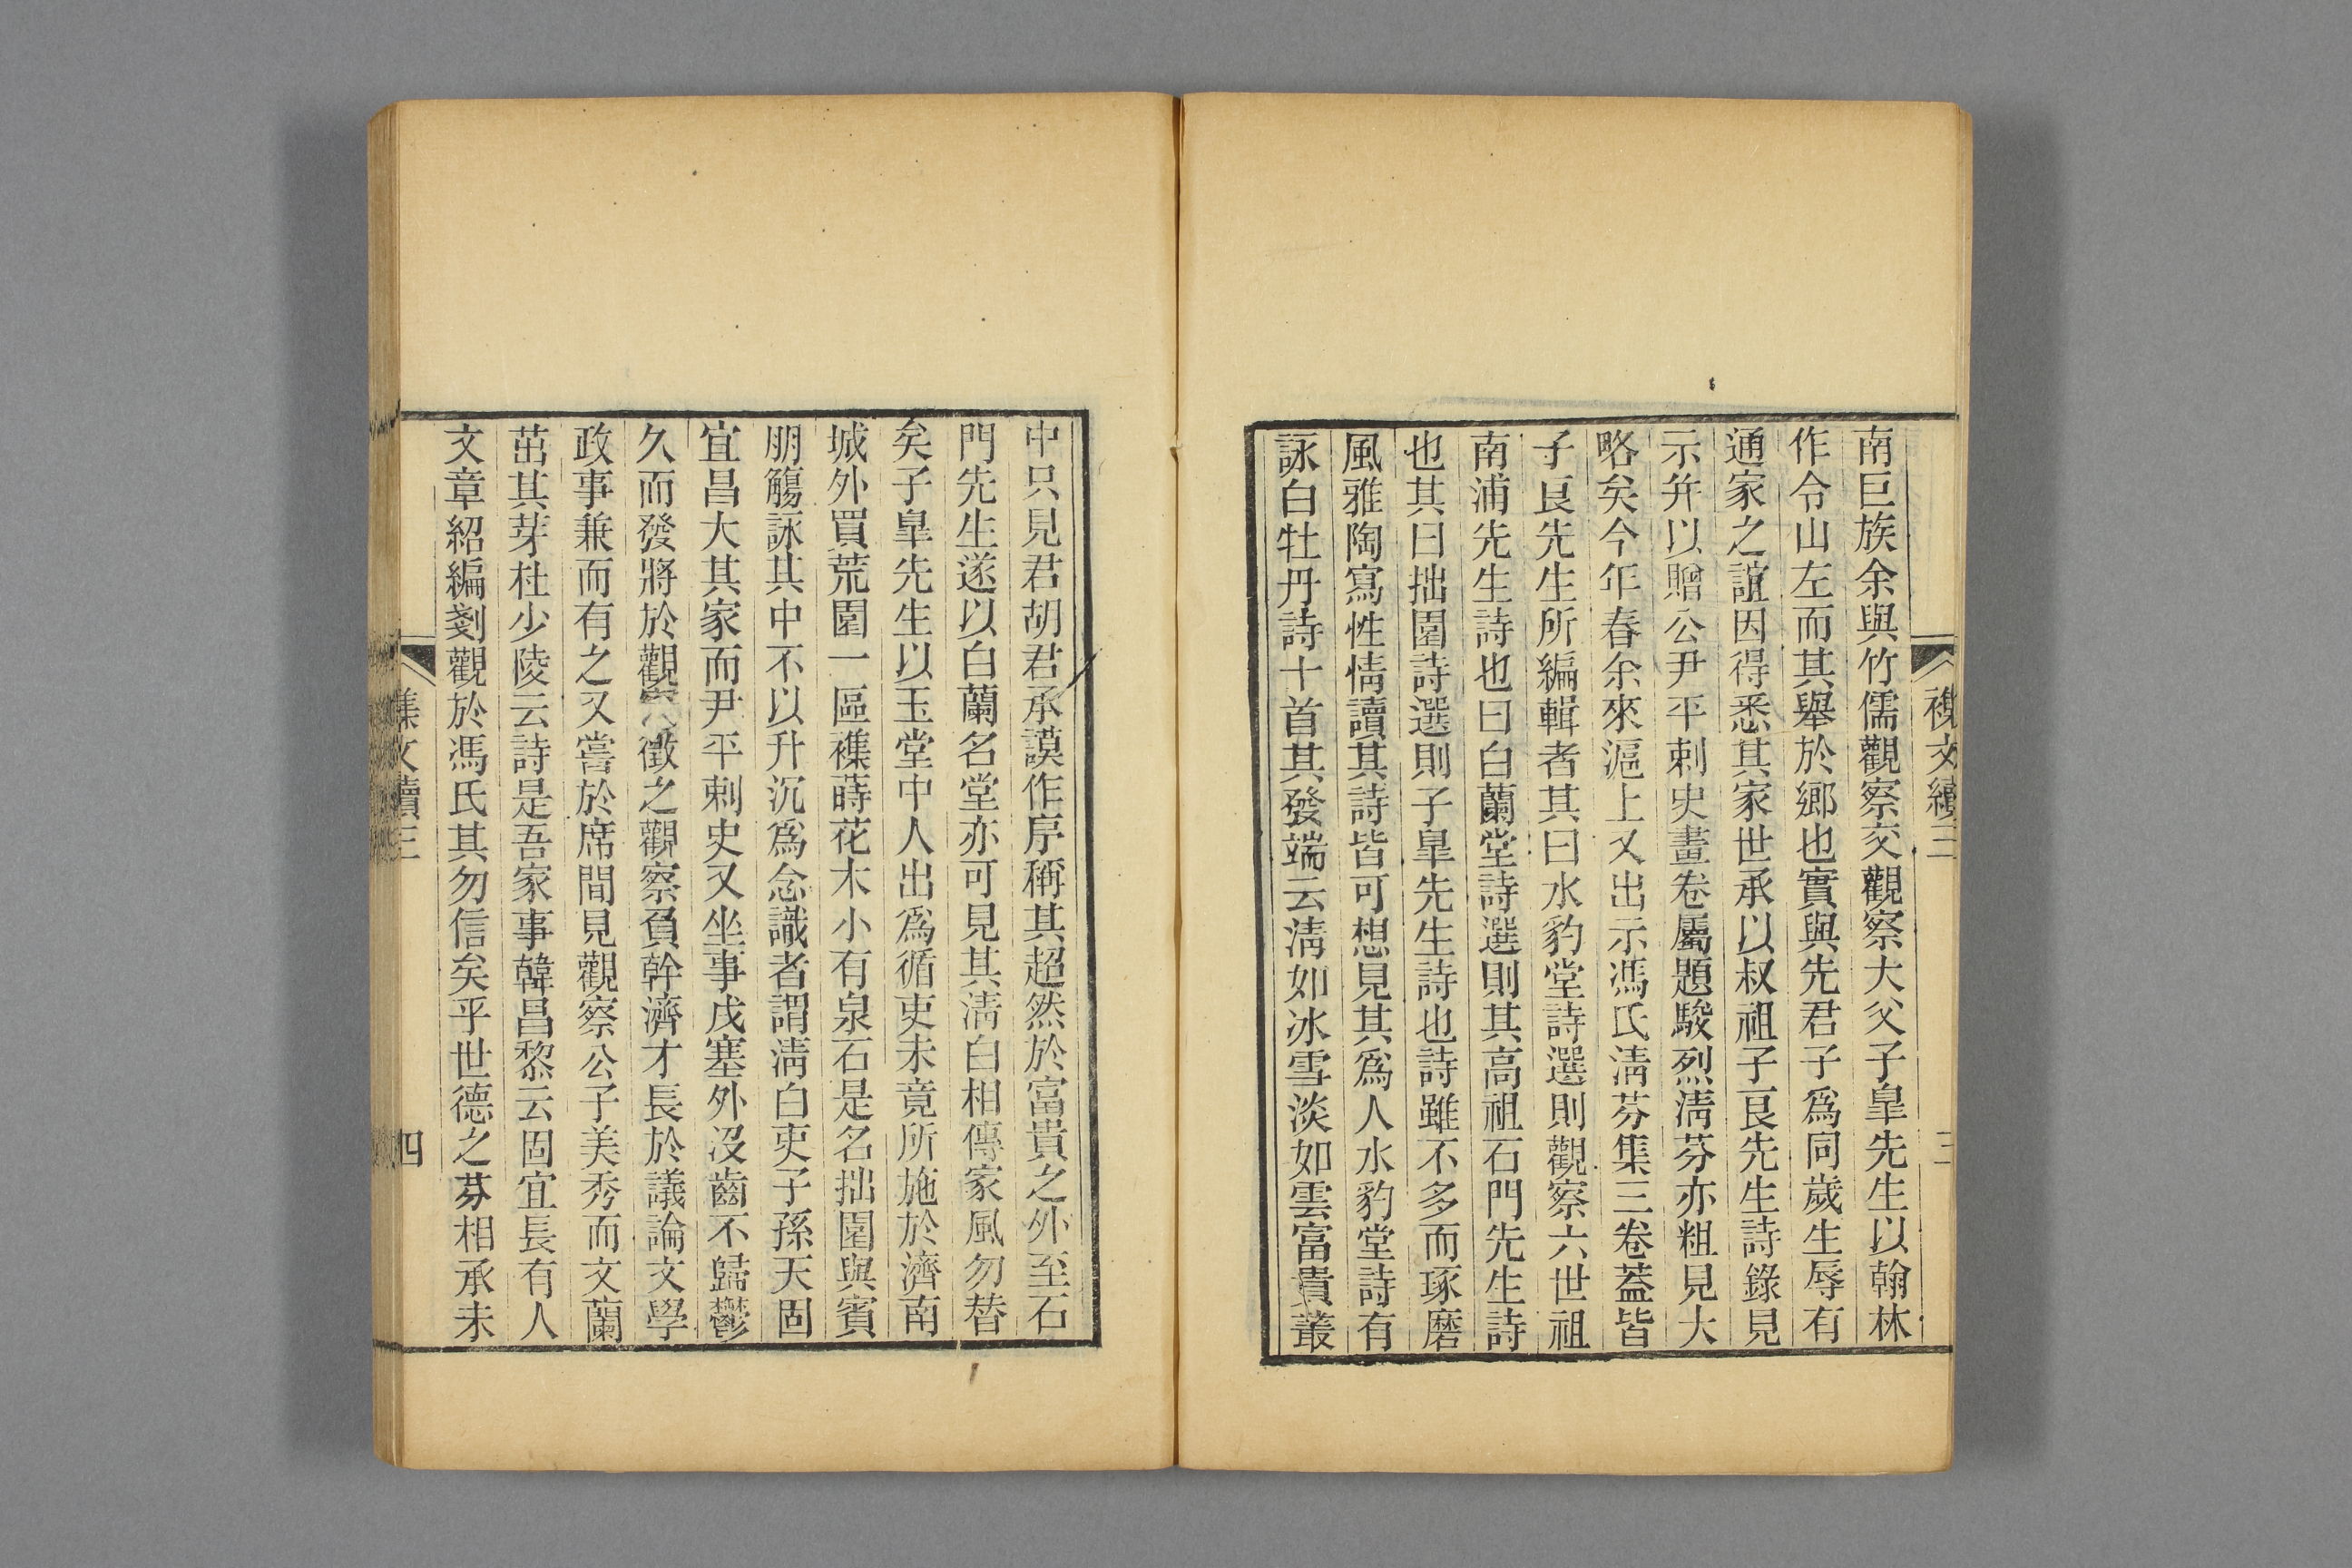 襍文續三
三
南巨族余與竹儒觀察交觀察大父子臯先生以翰林
作令山左而其舉於鄉也實與先君子爲同歲生辱有
通家之誼因得悉其家世承以叔祖子良先生詩錄見
示并以贈公尹平刺史畫卷屬題駿烈淸芬亦粗見大
略矣今年春余來滬上又出示馮氏淸芬集三卷蓋皆
子良先生所編輯者其曰水豹堂詩選則觀察六世祖
南浦先生詩也曰白蘭堂詩選則其高祖石門先生詩
也其曰拙園詩選則子臯先生詩也詩雖不多而琢磨
風雅陶寫性情讀其詩皆可想見其爲人水豹堂詩有
詠白牡丹詩十首其發端云淸如冰雪淡如雲富貴叢
中只見君胡君承謨作序稱其超然於富貴之外至石
門先生遂以白蘭名堂亦可見其淸白相傳家風勿替
矣子臯先生以玉堂中人出爲循吏未竟所施於濟南
城外買荒園一區襍蒔花木小有泉石是名拙園與賓
朋觴詠其中不以升沉爲念識者謂淸白吏子孫天固
宜昌大其家而尹平刺史又坐事戍塞外沒齒不歸鬱
久而發將於觀察徵之觀察負幹濟才長於議論文學
政事兼而有之又嘗於席間見觀察公子美秀而文蘭
茁其芽杜少陵云詩是吾家事韓昌黎云固宜長有人
文章紹編剗觀於馮氏其勿信矣乎世德之芬相承未
襍文續三
四